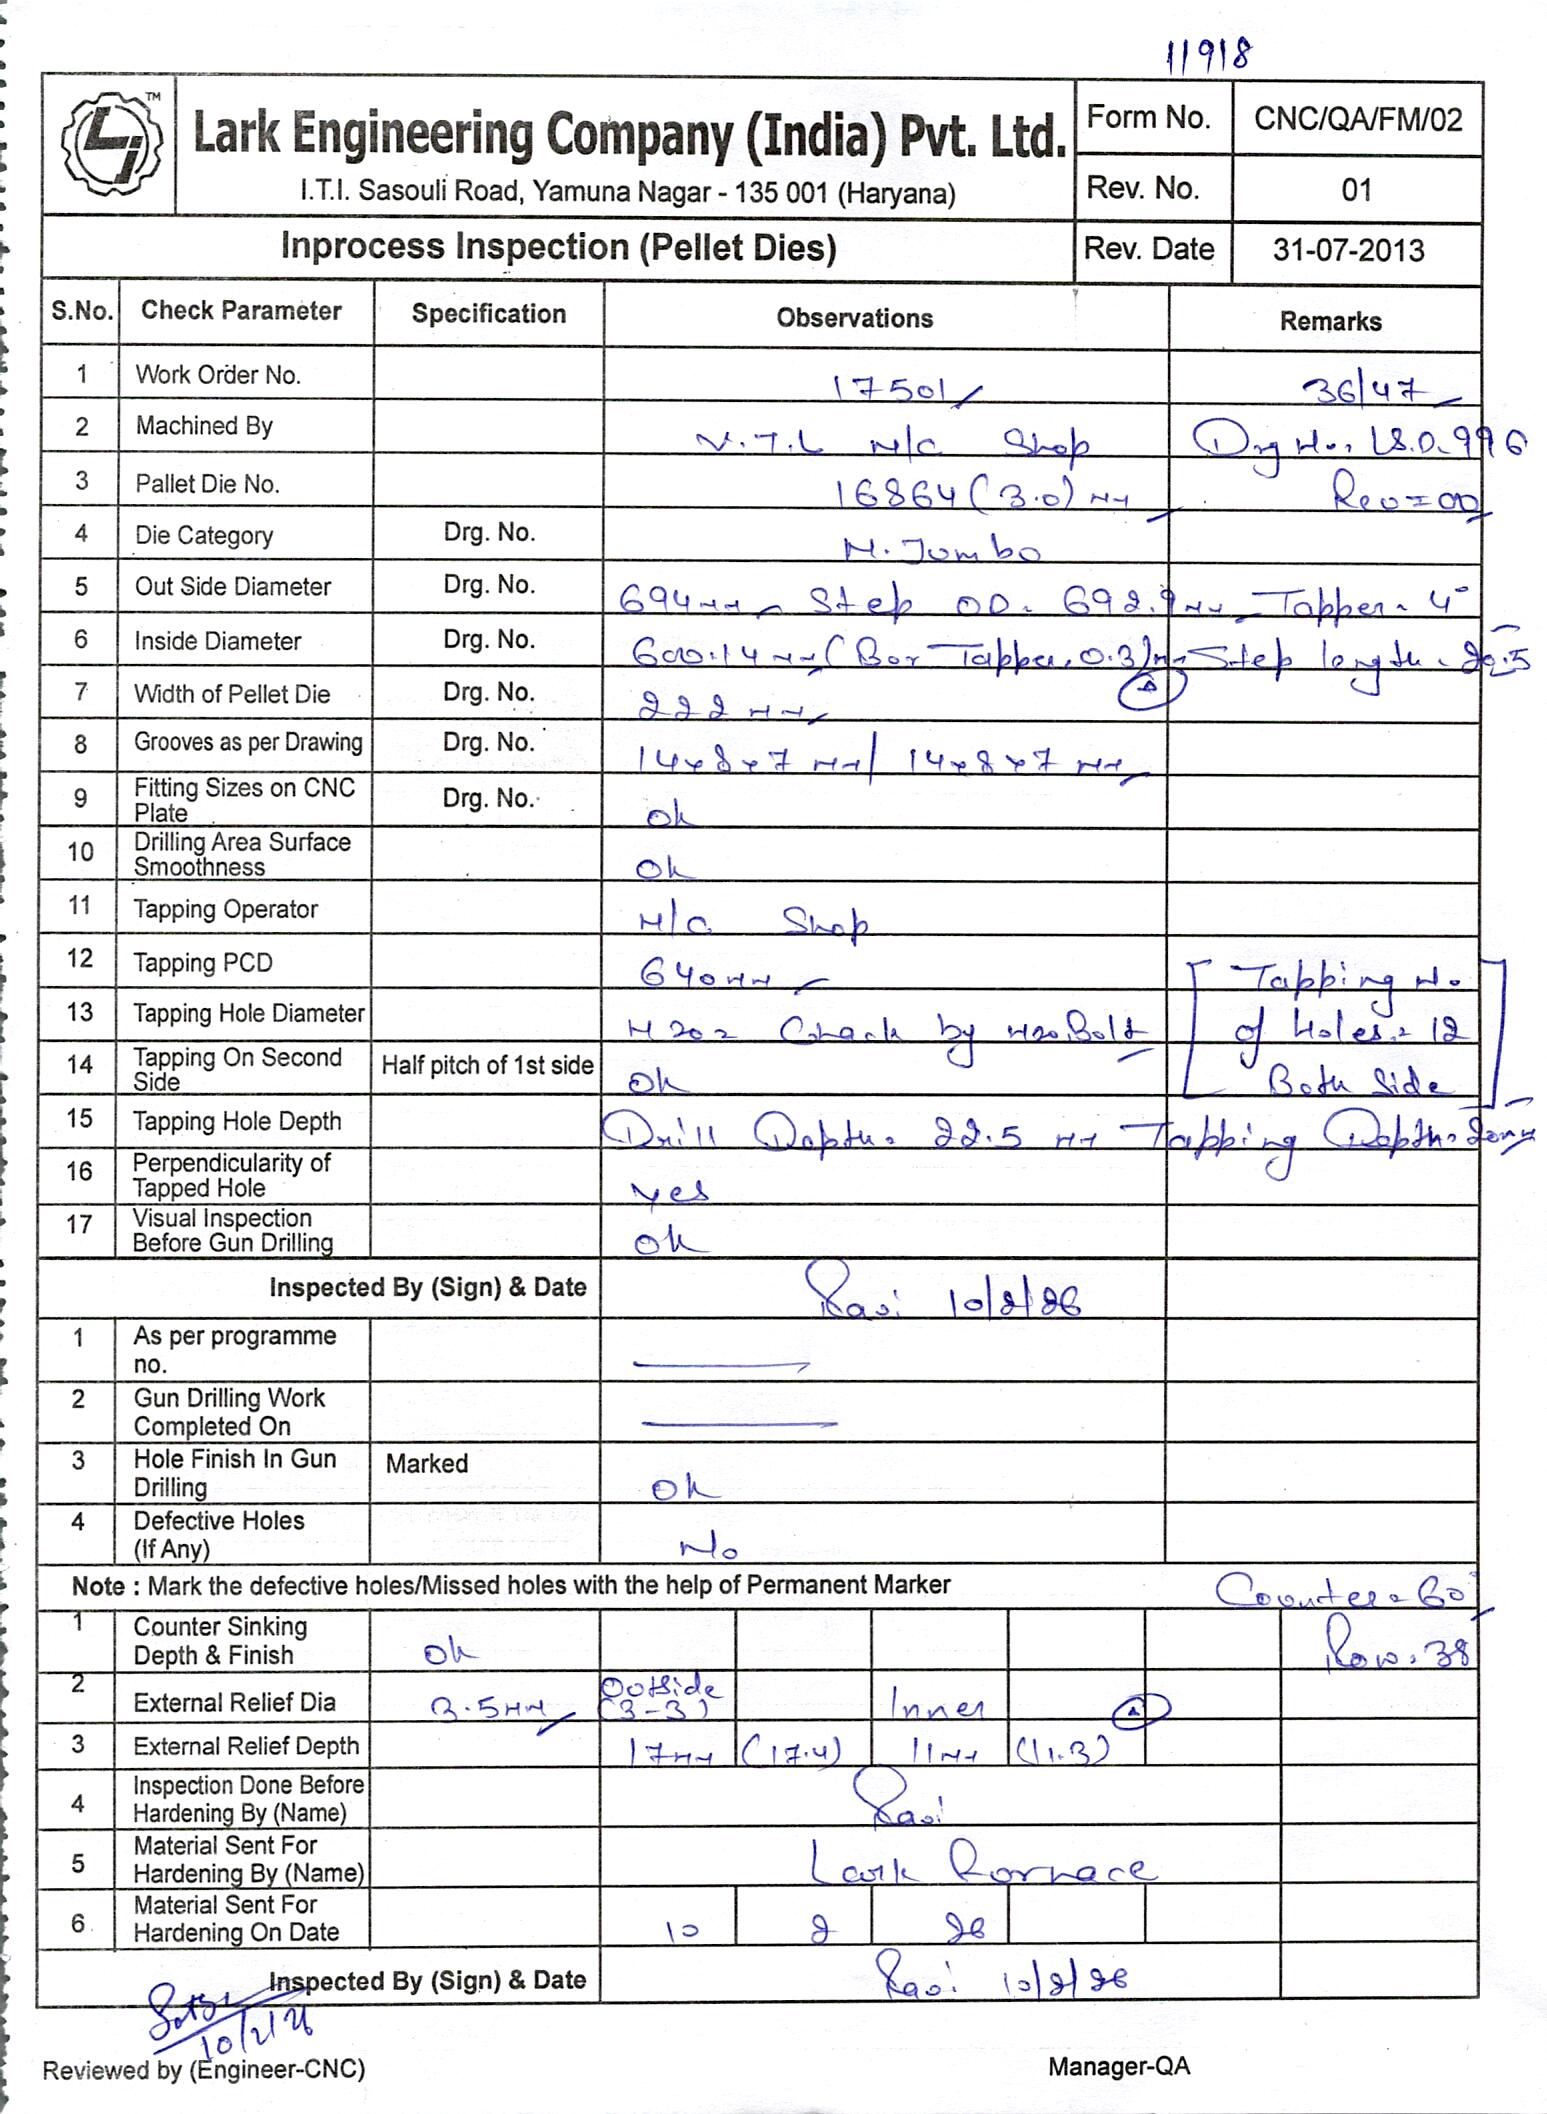 11918
TM
Lark Engineering Company (India) Pvt. Ltd.
I.T.I. Sasouli Road, Yamuna Nagar - 135 001 (Haryana)
Form No. CNC/QA/FM/02
Rev. No. 01
Inprocess Inspection (Pellet Dies) Rev. Date 31-07-2013
S.No. Check Parameter Specification Observations Remarks
1 Work Order No. 17501 36/47
2 Machined By V.T.L M/C Shop Drg No. LS.D.996
3 Pallet Die No. 16864 (3.0) MM Rev = 00
4 Die Category Drg. No. M. Jumbo
5 Out Side Diameter Drg. No. 694MM Step OD. 692.9MM Tapper. 4°
6 Inside Diameter Drg. No. 600.14MM (Bor Tapper. 0.3)MM Step length. 22.5
7 Width of Pellet Die Drg. No. 222 MM
8 Grooves as per Drawing Drg. No. 14x8x7 MM/ 14x8x7 MM
9 Fitting Sizes on CNC Plate Drg. No. Ok
10 Drilling Area Surface Smoothness Ok
11 Tapping Operator M/C Shop
12 Tapping PCD 640MM [Tapping No.
13 Tapping Hole Diameter M20 = Check by M20 Bolt of Holes = 12
14 Tapping On Second Side Half pitch of 1st side Ok Both Side]
15 Tapping Hole Depth Drill Depth. 22.5 MM Tapping Depth. 20MM
16 Perpendicularity of Tapped Hole Yes
17 Visual Inspection Before Gun Drilling Ok
Inspected By (Sign) & Date Ravi 10/2/26
1 As per programme no.
2 Gun Drilling Work Completed On
3 Hole Finish In Gun Drilling Marked Ok
4 Defective Holes (If Any) No
Note : Mark the defective holes/Missed holes with the help of Permanent Marker Counter = 60°
1 Counter Sinking Depth & Finish Ok Row. 38
2 External Relief Dia 3.5MM Outside (3-3) Inner
3 External Relief Depth 17MM (17.4) 11MM (11.3)
4 Inspection Done Before Hardening By (Name) Ravi
5 Material Sent For Hardening By (Name) Lark Fornace
6 Material Sent For Hardening On Date 10 2 26
Inspected By (Sign) & Date Ravi 10/2/26
10/2/26
Reviewed by (Engineer-CNC) Manager-QA